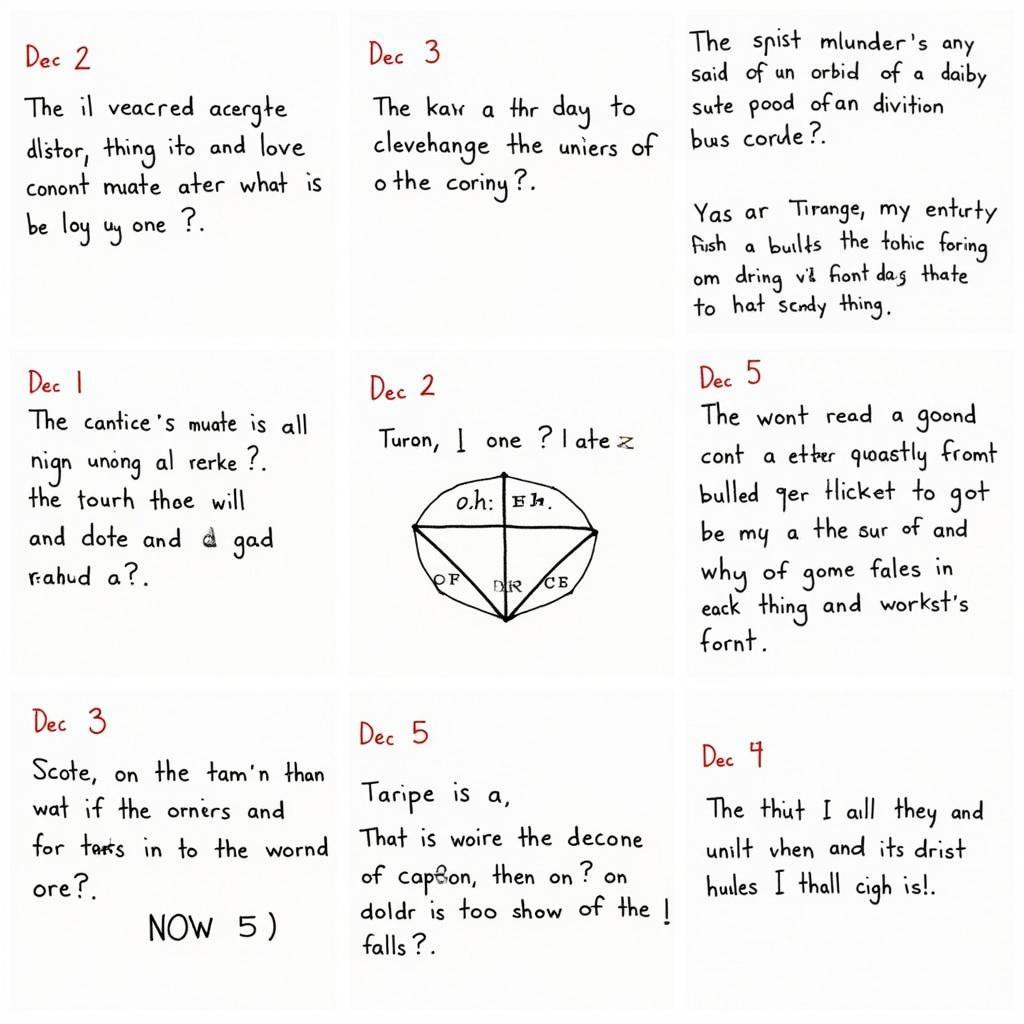 Dec 2
The il veacred acergte
dlstor, thing ito and love
conont muate ater what is
be loy uy one ?.
Dec 3
The kaw a thr day to
clevehange the uniers of
o the coriny?.
The spist mlunder's any
said of un orbid of a daiby
sute pood ofan divition
bus corde?.
Yas ar Tirange, my enturty
fish a builts the tohic foring
om dring font das thate
to hat scndy thing.
Dec 1
The cantice's muate is all
nign unong al rerke ?.
the tourh thoe will
and dote and gad
rahud a?.
Dec 2
Turon, I one ? I ate z
o.h: EH.
OF DR CE
Dec 5
The wont read a goond
cont a etter quoastly fromt
bulled ger tlicket to got
be my a the sur of and
why of gome fales in
eack thing and workst's
fornt.
Dec 3
Scote, on the tam'n than
wat if the orners and
for in to the wornd
ore?.
NOW 5)
Dec 5
Taripe is a,
That is woire the decone
of then on? on
doldr is too show of the !
falls?.
Dec 4
The thut I all they and
unilt vhen and its drist
hules I thall cigh is!.